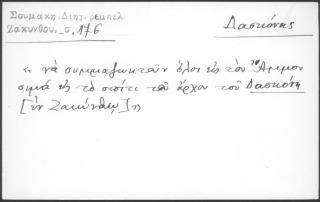 Σουμάκη. Διήγ. ρεμπελ.
Ζακύνθου, σ. 176
Δασκόνης
« νὰ συμμαζωχτοῦν ὅλοι εἰς τὸν Ἄμμον
σιμὰ εἰς τὸ σπίτι τοῦ ἄρχον τοῦ Δασκόνη
[ἐν Ζακύνθῳ] »